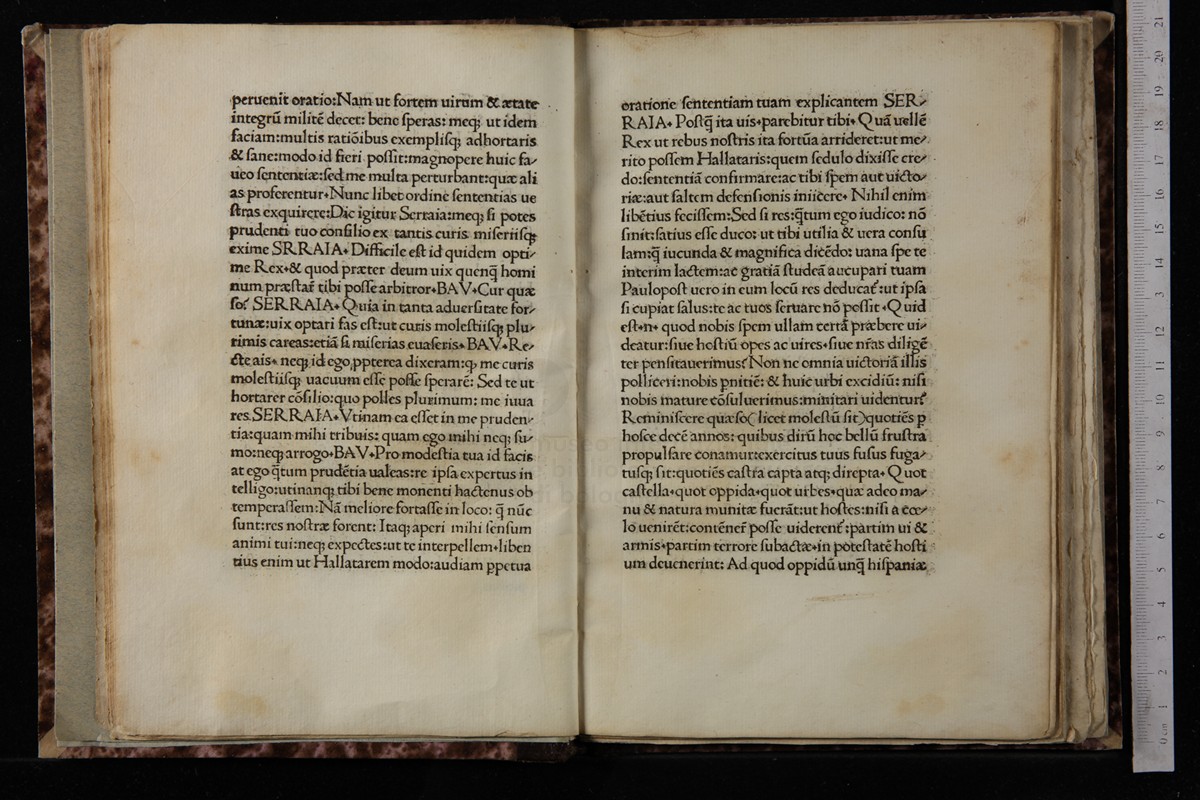 peruenit oratio:Nam ut fortem uirum & ætate
integrū militē decet: bene speras: meq; ut idem
faciam:multis ratiōibus exemplisq; adhortaris
& sane:modo id fieri possit:magnopere huic fa⸗
ueo sententiæ:sed me multa perturbant:quæ ali
as proferentur⸱Nunc libet ordine sententias ue
stras exquirere:Dic igitur Serraia:meq; si potes
prudenti tuo consilio ex tantis curis miseriisq;
exime SRRAIA⸱ Difficile est id quidem opti⸗
me Rex⸱& quod præter deum uix quenq̄ homi
num præstar̄ tibi posse arbitror⸱BAV⸱Cur quæ
so? SERRAIA⸱ Quia in tanta aduersitate for⸗
tunæ:uix optari fas est:ut curis molestiisq; plu⸗
rimis careas:etiā si miserias euaseris⸱ BAV⸱Re⸗
cte ais⸱ neq; id ego ꝓpterea dixeram:q; me curis
molestiisq; uacuum esse posse sperarē: Sed te ut
hortarer cōsilio:quo polles plurimum: me iuua
res.SERRAIA⸱Vtinam ea esset in me pruden⸗
tia:quam mihi tribuis: quam ego mihi neq; su⸗
mo:neq; arrogo⸱BAV⸱Pro modestia tua id facis
at ego q̄tum prudētia ualeas:re ipsa expertus in
telligo:utinanq; tibi bene monenti hactenus ob
temperassem:Nā meliore fortasse in loco: q̄ nūc
sunt:res nostræ forent: Itaq; aperi mihi sensum
animi tui:neq; expectes:ut te interpellem⸱liben
tius enim ut Hallatarem modo:audiam ppetua
oratione sententiam tuam explicantem SER⸗
RAIA⸱ Postq̄ ita uis⸱parebitur tibi⸱ Quā uellē
Rex ut rebus nostris ita fortūa arrideret:ut me⸗
rito possem Hallataris:quem sedulo dixisse cre⸗
do:sententiā confirmare:ac tibi spem aut uicto⸗
riæ:aut saltem defensionis iniicere⸱ Nihil enim
libētius fecissem:Sed si res:q̄tum ego iudico: nō
sinit:satius esse duco: ut tibi utilia & uera consu
lam:q̄ iucunda & magnifica dicēdo: uana spe te
interim lactem:ac gratiā studeā aucupari tuam
Paulopost uero in eum locū res deducat̄:ut ipsa
si cupiat salus:te ac tuos seruare nō possit ⸱Quid
est⸱n⸱ quod nobis spem ullam certā præbere ui⸗
deatur:siue hostiū opes ac uires⸱siue nr̄as diligē
ter pensitauerimus? Non ne omnia uictoriā illis
polliceri:nobis pnitiē: & huic urbi excidiū: nisi
nobis mature cōsuluerimus:minitari uidentur?
Reminiscere quæso( licet molestū sit)quotiēs p
hosce decē annos: quibus dirū hoc bellū frustra
propulsare conamur:exercitus tuus fusus fuga⸗
tusq; sit:quotiēs castra capta atq; direpta⸱ Quot
castella⸱quot oppida⸱quot urbes⸱quæ adeo ma⸗
nu & natura munitæ fuerāt:ut hostes:nisi a cœ⸗
lo uenirēt:contēner̄ posse uiderent̄ :partim ui &
armis⸱partim terrore subactæ⸱in potestatē hosti
um deuenerint: Ad quod oppidū unq̄ hispaniæ